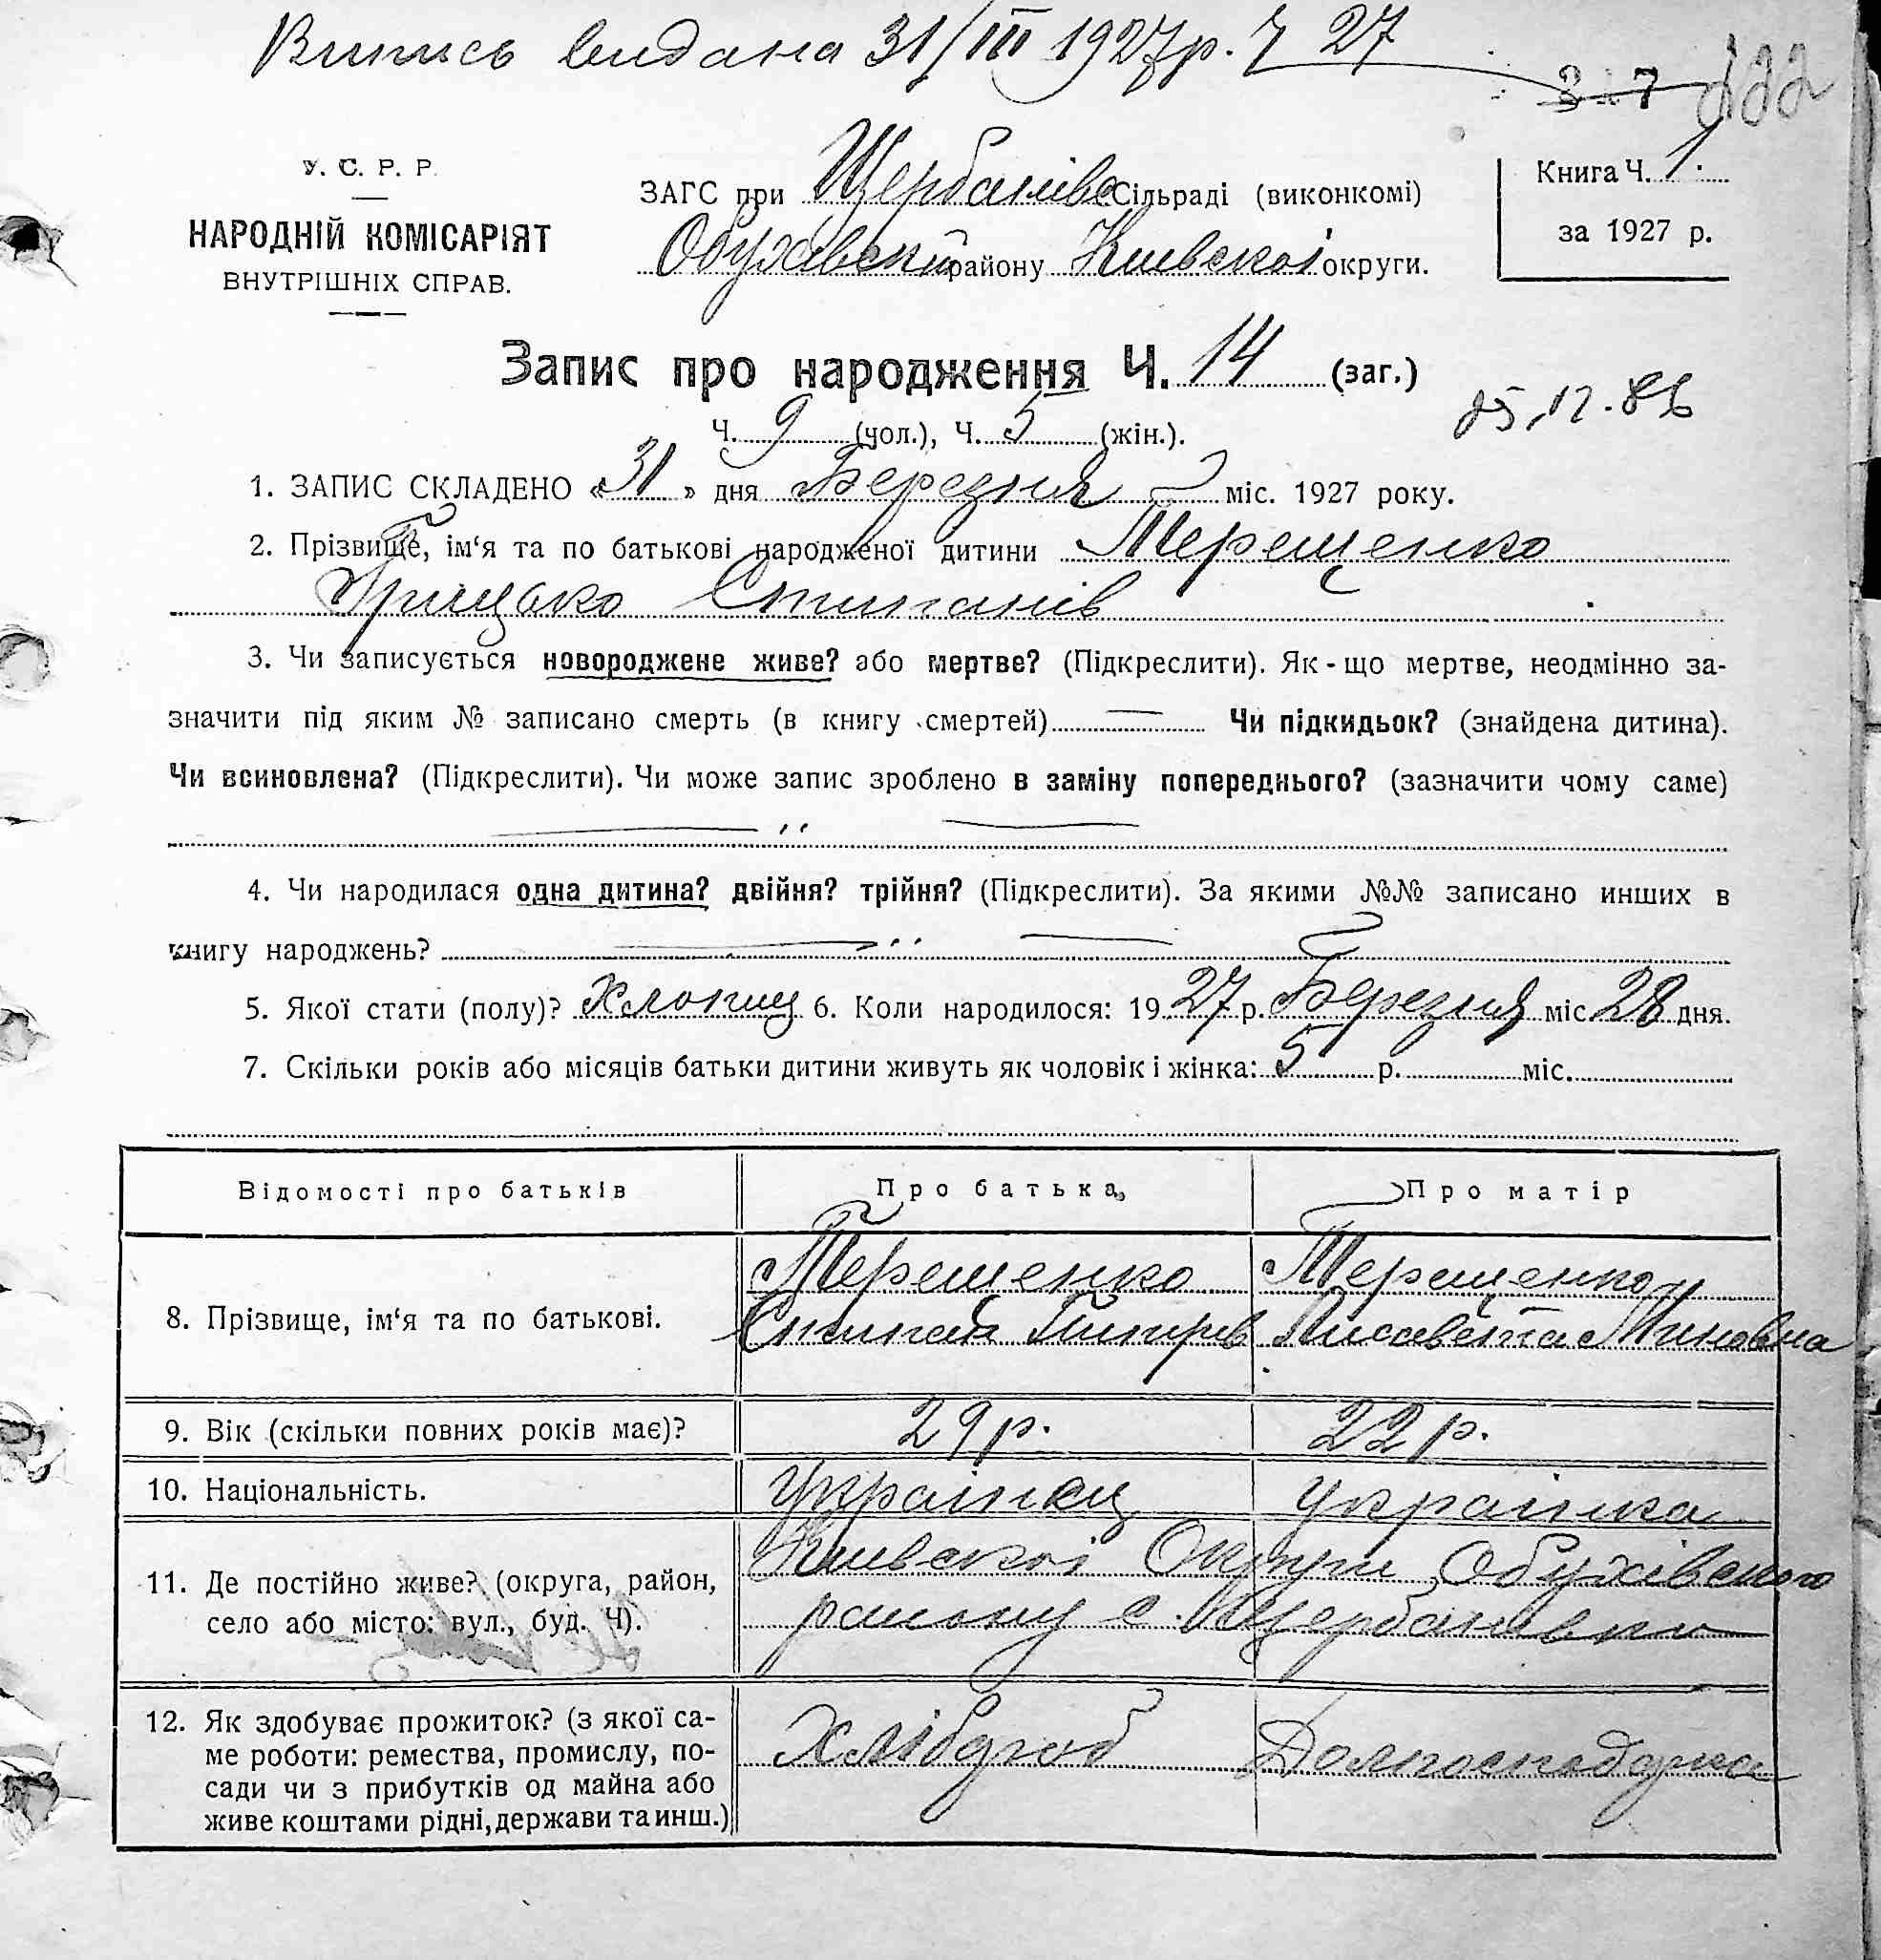 Випись видана 31/III 1927р. Ч 27
3 7 122
У. С. Р. Р.
НАРОДНІЙ КОМІСАРІЯТ
ВНУТРІШНІХ СПРАВ.
ЗАГС при Щербанівс Сільраді (виконкомі)
Обухівськ району Киевскоі округи.
Книга Ч. 1.
за 1927 р.
Запис про народження Ч. 14 (заг.)
25.12.86
Ч. 9 (чол.), Ч. 5 (жін.).
1. ЗАПИС СКЛАДЕНО « 31 » дня Березня міс. 1927 року.
2. Прізвище, ім‘я та по батькові народженої дитини Терещенко
Грицько Стипанів
3. Чи записується новороджене живе? або мертве? (Підкреслити). Як-що мертве, неодмінно за-
значити під яким № записано смерть (в книгу смертей) — Чи підкидьок? (знайдена дитина).
Чи всиновлена? (Підкреслити). Чи може запис зроблено в заміну попереднього? (зазначити чому саме)
— ,, —
4. Чи народилася одна дитина? двійня? трійня? (Підкреслити). За якими №№ записано инших в
книгу народжень? — ,, —
5. Якої стати (полу)? Хлопиц 6. Коли народилося: 19 27 р. Березня міс. 28 дня.
7. Скільки років або місяців батьки дитини живуть як чоловік і жінка: 5 р. міс.
Відомості про батьків Про батька Про матір
8. Прізвище, ім‘я та по батькові.
Терещенко Терещенко
Стипан Типирів Лисавета Миновна
9. Вік (скільки повних років має)? 29 р. 22 р.
10. Національність. Українец українка
11. Де постійно живе? (округа, район,
село або місто: вул., буд. Ч).
Киевскоі Округи Обухівского
району с. Щербанівки
12. Як здобуває прожиток? (з якої са-
ме роботи: ремества, промислу, по-
сади чи з прибутків од майна або
живе коштами рідні, держави та инш.)
Хлібороб Домгосподарка